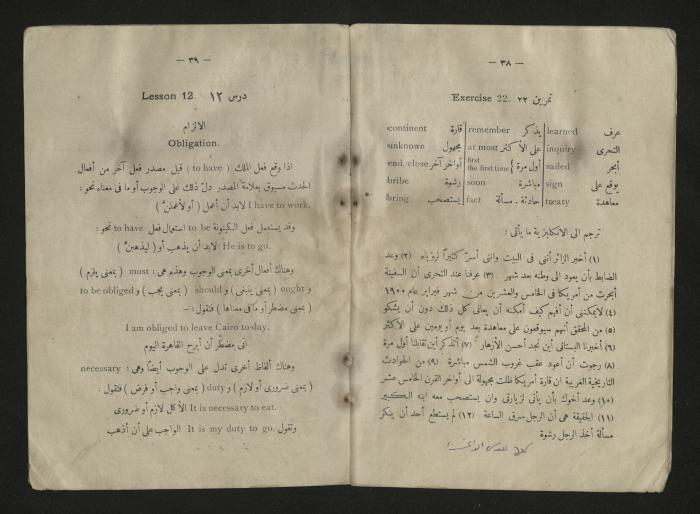 — ٣٨ —
Exercise 22. تمرين ٢٢
عرف learned يذكر remember قارة continent
التحرى inquiry على الأكثر at most مجهول unknown
أبحر sailed أول مرة } first the first time أواخر آخر end. close
يوقع على sign مباشرة soon رشوة bribe
معاهدة treaty حادثة . مسألة fact يستصحب bring
ترجم الى الانكليزية ما يأتى :
(١) أخبر الزائر أننى فى البيت واننى أسرّ كثيرًا لرؤياه (٢) وعد
الضابط بأن يعود الى وطنه بعد شهر (٣) عرفنا عند التحرى أن السفينة
أبحرت من أمريكا فى الخامس والعشرين من شهر فبراير عام ١٩٠٠
(٤) لايمكننى أن أفهم كيف أمكنه أن يعانى كل ذلك دون أن يشكو
(٥) من المحقق أنهم سيوقعون على معاهدة بعد يوم أو يومين على الاكثر
(٦) أخبرنا البستانى أين نجد أحسن الأزهار (٧) أتذكر أين تقابلنا أول مرة
(٨) رجوت أن أعود عقب غروب الشمس مباشرة (٩) من الحوادث
التاريخية الغريبة ان قارة أمريكا ظلت مجهولة الى أواخر القرن الخامس عشر
(١٠) وعد أخوك بأن يأتى لزيارتى وان يستصحب معه ابنه الكبير
(١١) الحقيقة هى أن الرجل سرق الساعة (١٢) لم يستطع أحد أن ينكر
مسألة أخذ الرجل رشوة
— ٣٩ —
Lesson 12. درس ١٢
الالزام
Obligation.
اذا وقع فعل الملك ( to have ) قبل مصدر فعل آخر من أفعال
الحدث مسبوق بعلامة المصدر دلّ ذلك على الوجوب أو ما فى معناه نحو :
I have to work. لابد أن أعمل ( أو لأعملن )
وقد يستعمل فعل الكينونة to be استعمال فعل to have نحو :
He is to go. لابد أن يذهب أو ( ليذهبن )
وهناك أفعال أخرى بمعنى الوجوب وهذه هى : must ( بمعنى يلزم )
و ought ( بمعنى ينبغى ) و should ( بمعنى يجب ) و to be obliged
( بمعنى مضطر أو ما فى معناها ) فتقول : —
I am obliged to leave Cairo to-day.
انى مضطر أن أبرح القاهرة اليوم
وهناك ألفاظ أخرى تدل على الوجوب أيضًا وهى : necessary
( بمعنى ضرورى أو لازم ) و duty ( بمعنى واجب أو فرض ) فتقول :
It is necessary to eat. الأكل لازم أو ضرورى
وتقول It is my duty to go. الواجب على أن أذهب